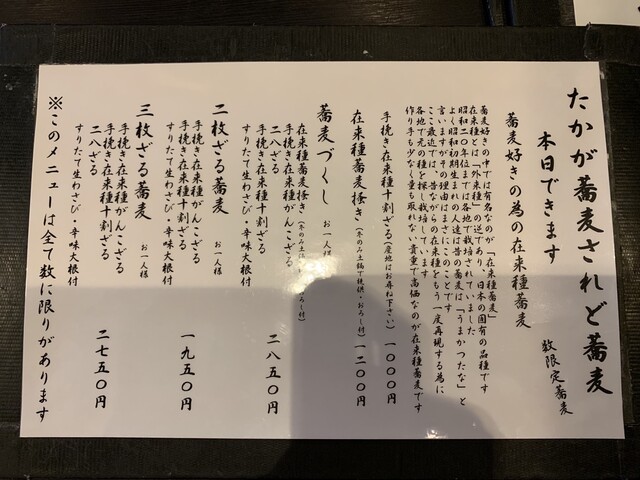 たかが蕎麦されど蕎麦
本日できます
数限定蕎麦
蕎麦好きの為の在来種蕎麦
蕎麦好きの中では有名なのが「在来種蕎麦」
在来種とは「外来種」の逆であり、日本の固有の品種です
昭和二〇年位までは各地で栽培されていました
よく昭和初期生まれの人達は昔の蕎麦は「うまかったな」と
言いますがその理由はまさにこのことです
ここ最近では、昔ながらの在来種をもう一度再現する為に
各地で元の種を探し栽培しています
作り手も少なく量も取れない貴重で高価なのが在来種蕎麦です
手挽き在来種十割ざる(産地はお尋ね下さい) 一〇〇〇円
在来種蕎麦掻き(冬のみ土鍋で提供・おろし付) 一二〇〇円
蕎麦づくし お一人様
在来種蕎麦掻き(冬のみ土
ろし付)
手挽き在来種がんこざる
二八ざる
手挽き在来種十割ざる
すりたて生わさび・辛味大根付 二八五〇円
二枚ざる蕎麦 お一人様
手挽き在来種がんこざる
手挽き在来種十割ざる
すりたて生わさび・辛味大根付 一九五〇円
三枚ざる蕎麦 お一人様
手挽き在来種がんこざる
手挽き在来種十割ざる
二八ざる
すりたて生わさび・辛味大根付 二七五〇円
※このメニューは全て数に限りがあります